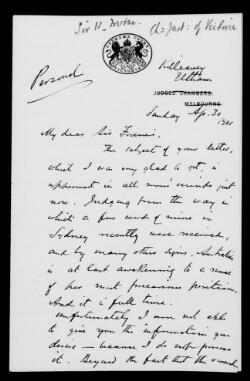 Sir W. Irvine Ch: Just: of Victoria
SUPREME COURT
VICTORIA
Personal
Killeavey
Eltham
JUDGES' CHAMBERS,
MELBOURNE
Sunday Ap. 30
My dear Sir Francis.
The subject of your letter,
which I was very glad to get, is
uppermost in all men's minds just
now. Judging from the way in
which a few words of mine in
Sydney recently were received,
and by many other signs, Australia
is at last awakening to a sense
of her most precarious position.
And it is full time.
Unfortunately I am not able
to give you the information you
desire – because I do not possess
it. Beyond the fact that the